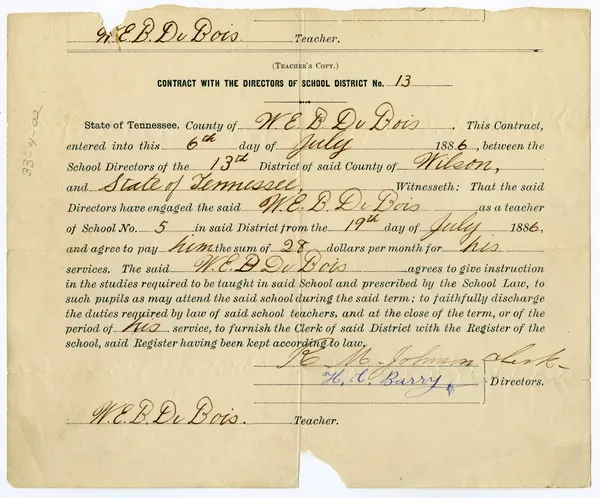 W.E.B. Du Bois. Teacher.
(TEACHER'S COPY.)
CONTRACT WITH THE DIRECTORS OF SCHOOL DISTRICT No. 13
State of Tennessee, County of W. E. B Du Bois. This Contract,
entered into this 6th day of July 1886, between the
School Directors of the 13th District of said County of Wilson,
and State of Tennessee, Witnesseth: That the said
Directors have engaged the said W. E. B. Du Bois as a teacher
of School No. 5 in said District from the 19th day of July 1886,
and agree to pay him the sum of 28 dollars per month for his
services. The said W. E B Du Bois agrees to give instruction
in the studies required to be taught in said School and prescribed by the School Law, to
such pupils as may attend the said school during the said term; to faithfully discharge
the duties required by law of said school teachers, and at the close of the term, or of the
period of his service, to furnish the Clerk of said District with the Register of the
school, said Register having been kept according to law,
M Johnson clerk
H. C. Barry Directors.
W.E.B. Du Bois. Teacher.
33-4-02